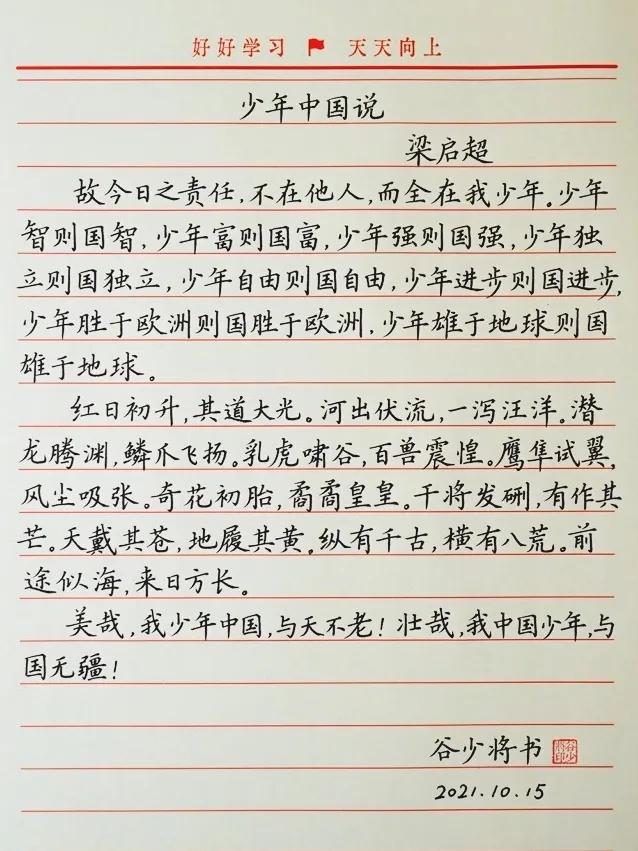 好好学习 天天向上
少年中国说
梁启超
故今日之责任,不在他人,而全在我少年。少年
智则国智,少年富则国富,少年强则国强,少年独
立则国独立,少年自由则国自由,少年进步则国进步,
少年胜于欧洲则国胜于欧洲,少年雄于地球则国
雄于地球。
红日初升,其道大光。河出伏流,一泻汪洋。潜
龙腾渊,鳞爪飞扬。乳虎啸谷,百兽震惶。鹰隼试翼,
风尘吸张。奇花初胎,矞矞皇皇。干将发硎,有作其
芒。天戴其苍,地履其黄。纵有千古,横有八荒。前
途似海,来日方长。
美哉,我少年中国,与天不老!壮哉,我中国少年,与
国无疆!
谷少将书
2021.10.15